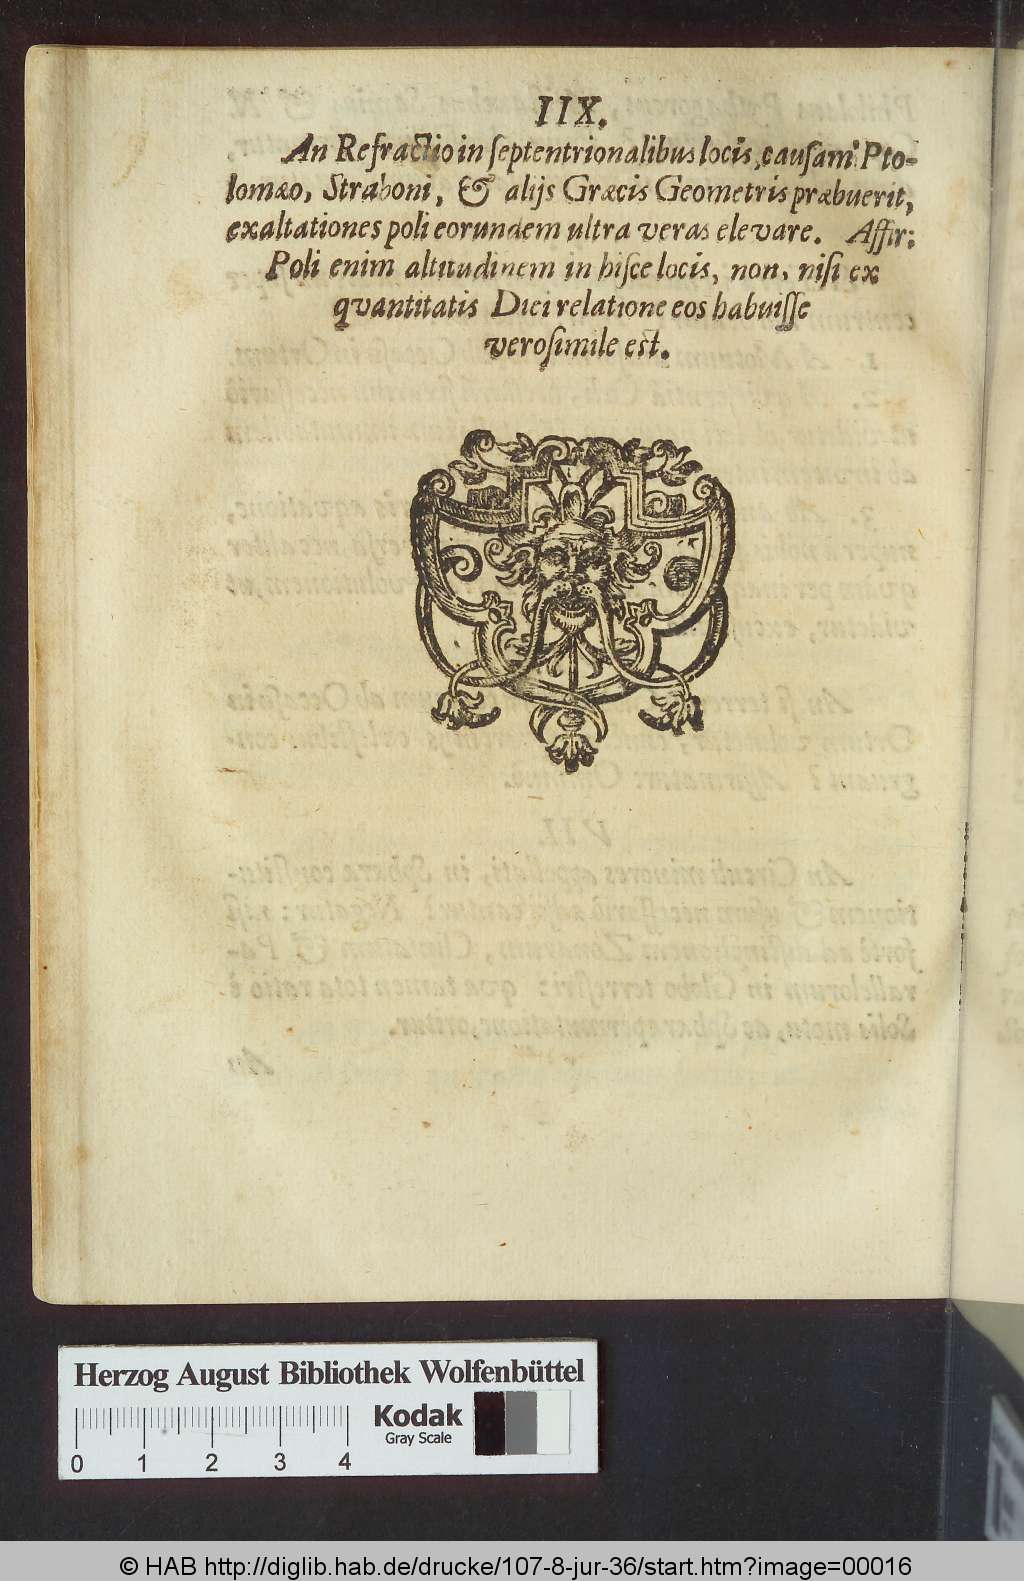 IIX.
An Refractio in ſeptentrionalibus locis, cauſam Pto-
lomæo, Straboni, & alijs Græcis Geometris præbuerit,
exaltationes poli eorundem ultra veras elevare. Affir:
Poli enim altitudinem in hiſce locis, non, niſi ex
qvantitatis Diei relatione eos habuiſſe
veroſimile est.
Herzog August Bibliothek Wolfenbüttel
Kodak
Gray Scale
0 1 2 3 4
© HAB http://diglib.hab.de/drucke/107-8-jur-36/start.htm?image=00016